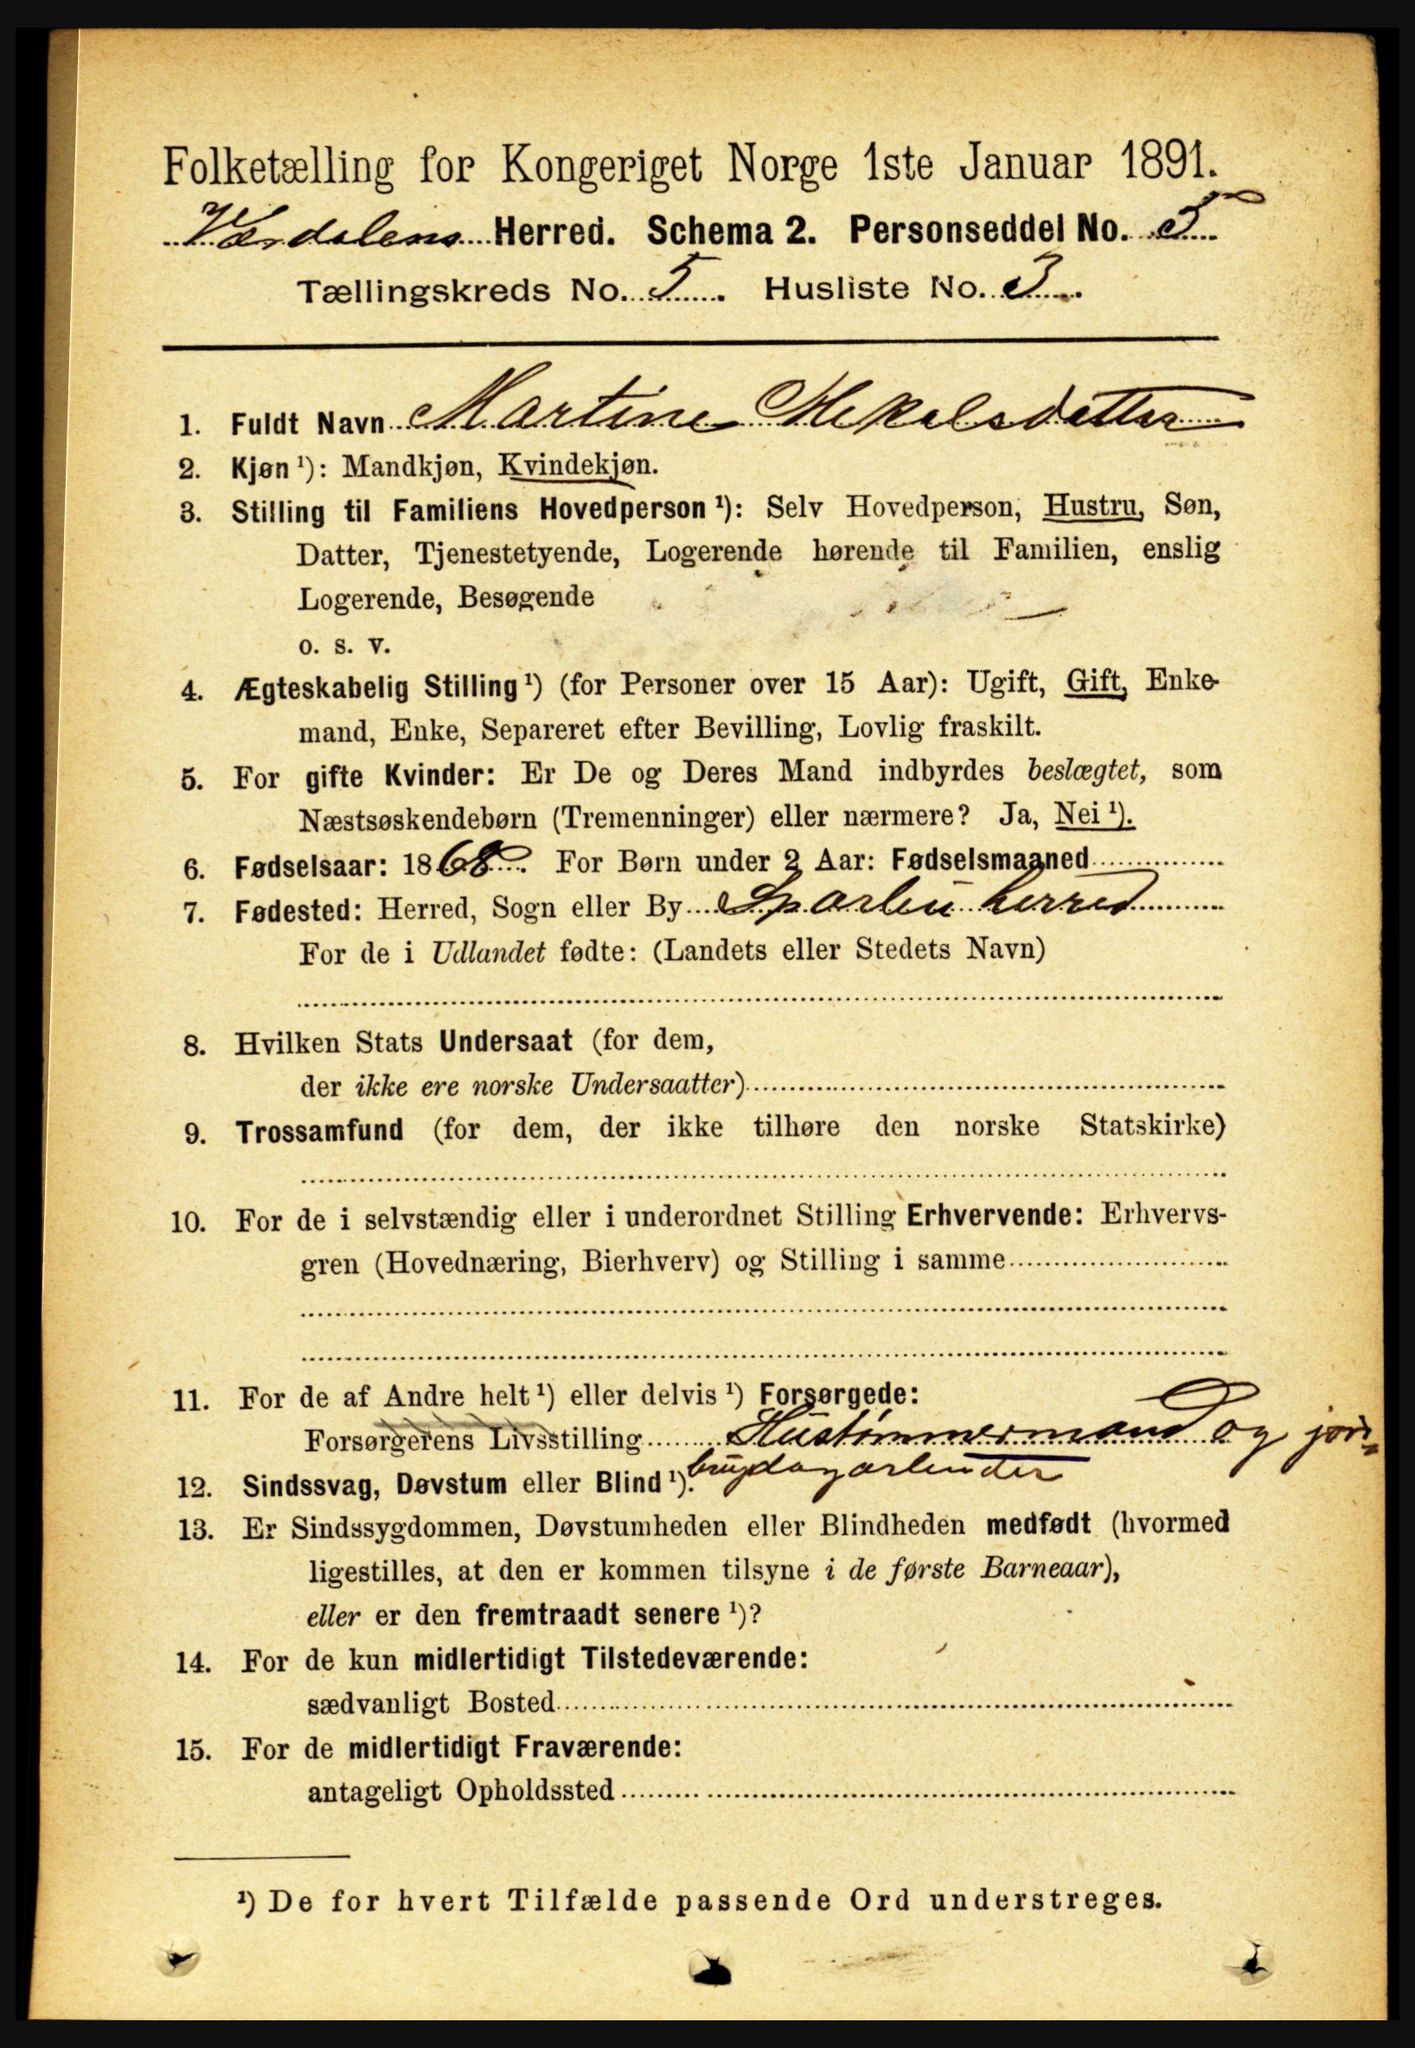 Folketælling for Kongeriget Norge 1ste Januar 1891.
Værdalens Herred. Schema 2. Personseddel No. 5
Tællingskreds No. 5. Husliste No. 3.
1. Fuldt Navn Martine Mekalsdatter
2. Kjøn ¹): Mandkjøn, Kvindekjøn.
3. Stilling til Familiens Hovedperson ¹): Selv Hovedperson, Hustru, Søn,
Datter, Tjenestetyende, Logerende hørende til Familien, enslig
Logerende, Besøgende
o. s. v.
4. Ægteskabelig Stilling ¹) (for Personer over 15 Aar): Ugift, Gift, Enke-
mand, Enke, Separeret efter Bevilling, Lovlig fraskilt.
5. For gifte Kvinder: Er De og Deres Mand indbyrdes beslægtet, som
Næstsøskendebørn (Tremenninger) eller nærmere? Ja, Nei ¹).
6. Fødselsaar: 1868. For Børn under 2 Aar: Fødselsmaaned
7. Fødested: Herred, Sogn eller By Sparbu herred
For de i Udlandet fødte: (Landets eller Stedets Navn)
8. Hvilken Stats Undersaat (for dem,
der ikke ere norske Undersaatter)
9. Trossamfund (for dem, der ikke tilhøre den norske Statskirke)
10. For de i selvstændig eller i underordnet Stilling Erhvervende: Erhvervs-
gren (Hovednæring, Bierhverv) og Stilling i samme
11. For de af Andre helt ¹) eller delvis ¹) Forsørgede:
Forsørgerens Livsstilling Hustømmermand og jord=
brugdagarbeider
12. Sindssvag, Døvstum eller Blind ¹).
13. Er Sindssygdommen, Døvstumheden eller Blindheden medfødt (hvormed
ligestilles, at den er kommen tilsyne i de første Barneaar),
eller er den fremtraadt senere ¹)?
14. For de kun midlertidigt Tilstedeværende:
sædvanligt Bosted
15. For de midlertidigt Fraværende:
antageligt Opholdssted
¹) De for hvert Tilfælde passende Ord understreges.